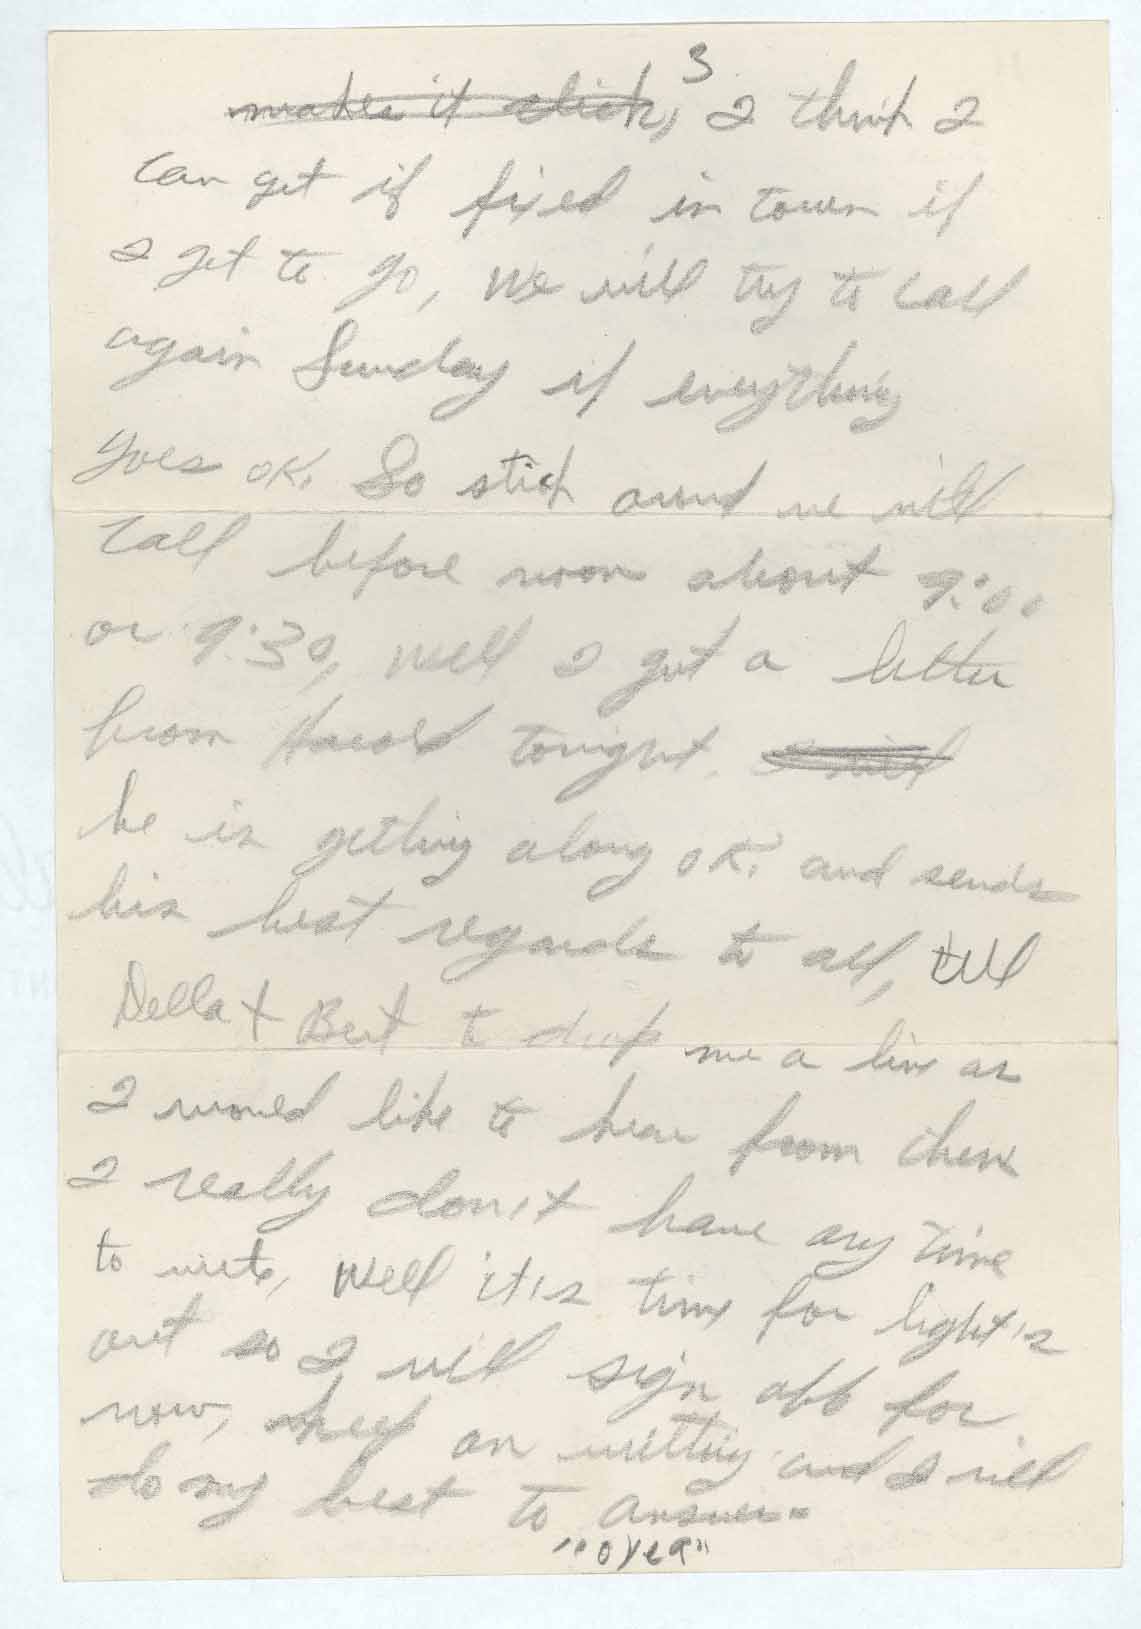 3
makes it stick, I think I
can get if fixed in town if
I get to go, We will try to call
again Sunday if everything
goes OK. So stick around we will
call before noon about 9:00
or 9:30, Well I got a letter
from Harold tonight. I will
he is getting along OK. and sends
his best regards to all, tell
Della + Bert to drop me a line as
I would like to hear from them
I really don't have any time
to write, Well it's time for light's
out so I will sign off for
now, keep on writting and I will
do my best to answer-
"over"